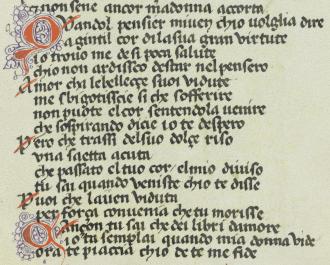 non sene ancor madonna accorta
Quandol pensier miuen chio uolglia dire
a gintil cor dilasua gran uirtute
io trouo me di si poca salute
chio non ardisco di star nel pensero
Amor cha le belleçce suoi uidute
me sbigotiscie si che sofferire
non puote el cor sentendola uenire
che sospirando dicie io te dispero
Pero che trassi del suo dolçe riso
una saetta acuta
che passato el tuo cor el mio diuiso
tu sai quando uenisti chio te disse
Puoi che lauen uiduta
per força conuenia che tu morisse
Cançon tu sai che dei libri damore
io tu semplai quando mia donna uide
ora te piaccia chio de te me fide